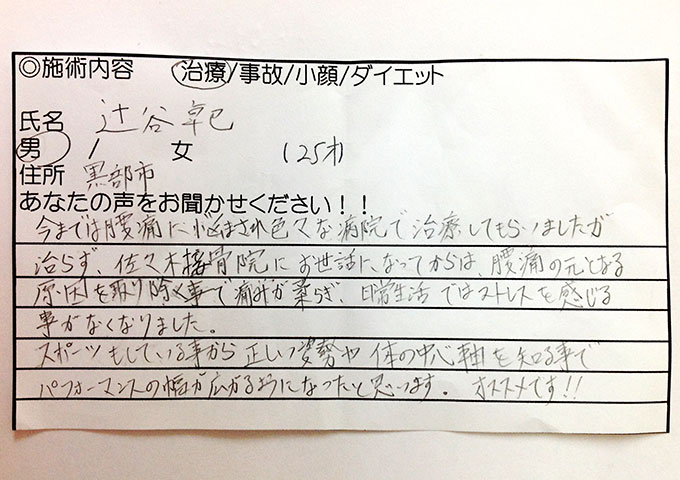 ◎施術内容　治療/事故/小顔/ダイエット
氏名　辻谷卓巳
男　/　女　(25才)
住所　黒部市
あなたの声をお聞かせください！！
今までは腰痛に悩まされ色々な病院で治療してもらいましたが
治らず、佐々木接骨院にお世話になってからは、腰痛の元となる
原因を取り除く事で痛みが楽らぎ、日常生活ではストレスを感じる
事がなくなりました。
スポーツもしている事から正しい姿勢や体の中心軸を知る事で
パフォーマンスの幅が広がるようになったと思います。オススメです!!